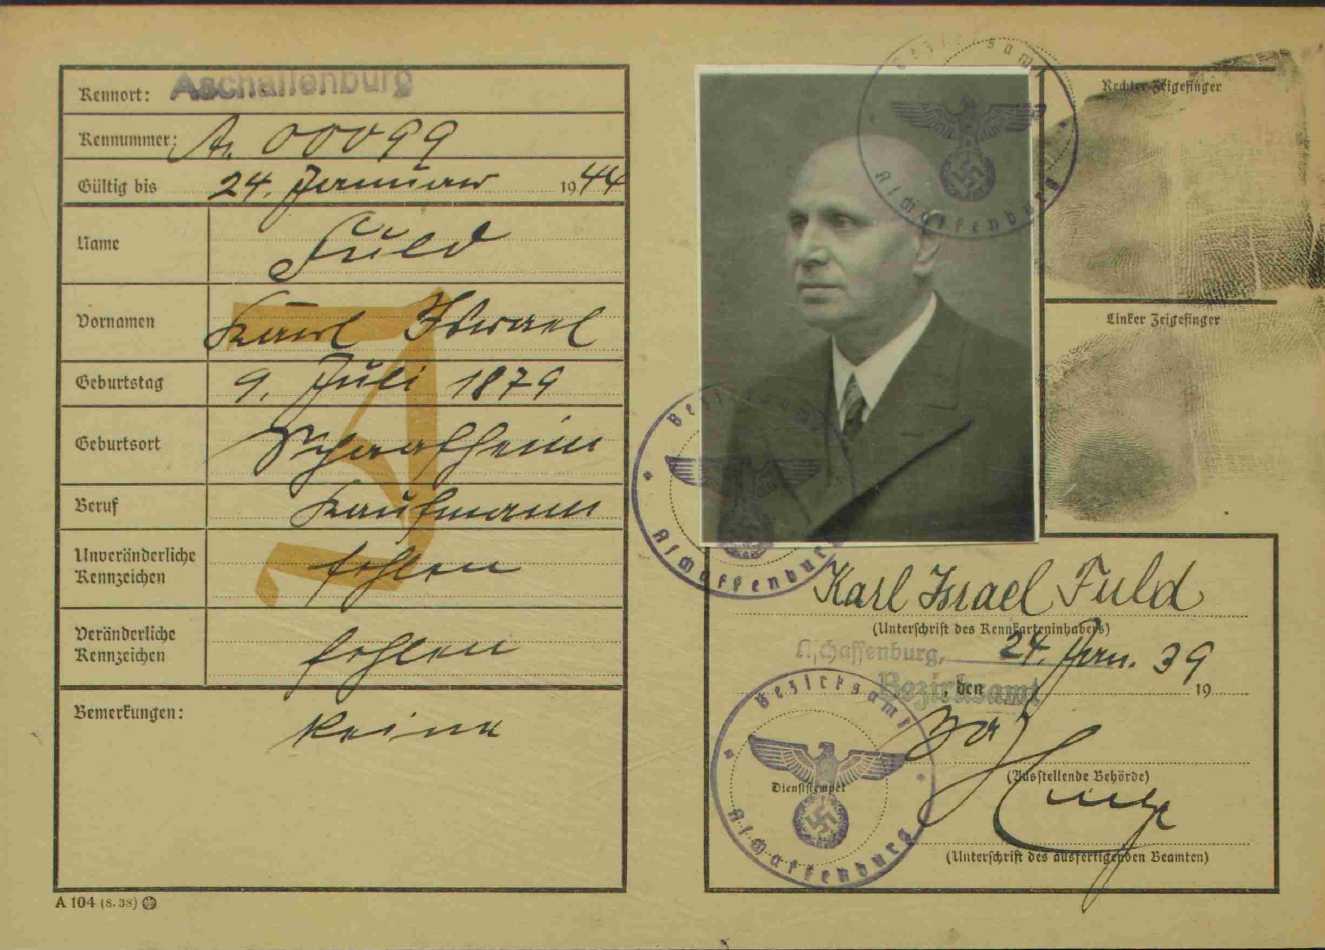 Kennort: Aschaffenburg
Kennummer: A. 00099
Gültig bis 24. Januar 1944
Name Fuld
Vornamen Karl Israel
Geburtstag 9. Juli 1879
Geburtsort Schaafheim
Beruf Kaufmann
Unveränderliche Kennzeichen fehlen
Veränderliche Kennzeichen fehlen
Bemerkungen: keine
J
A 104 (8. 38)
Bezirksamt
Aschaffenburg
Rechter Zeigefinger
Linker Zeigefinger
Bezirksamt
Aschaffenburg
Karl Israel Fuld
(Unterschrift des Kennkarteninhabers)
Aschaffenburg, 24. Jan. 39
Bezirksamt , den 19
(Ausstellende Behörde)
Bezirksamt
Dienststempel
Aschaffenburg
(Unterschrift des ausfertigenden Beamten)